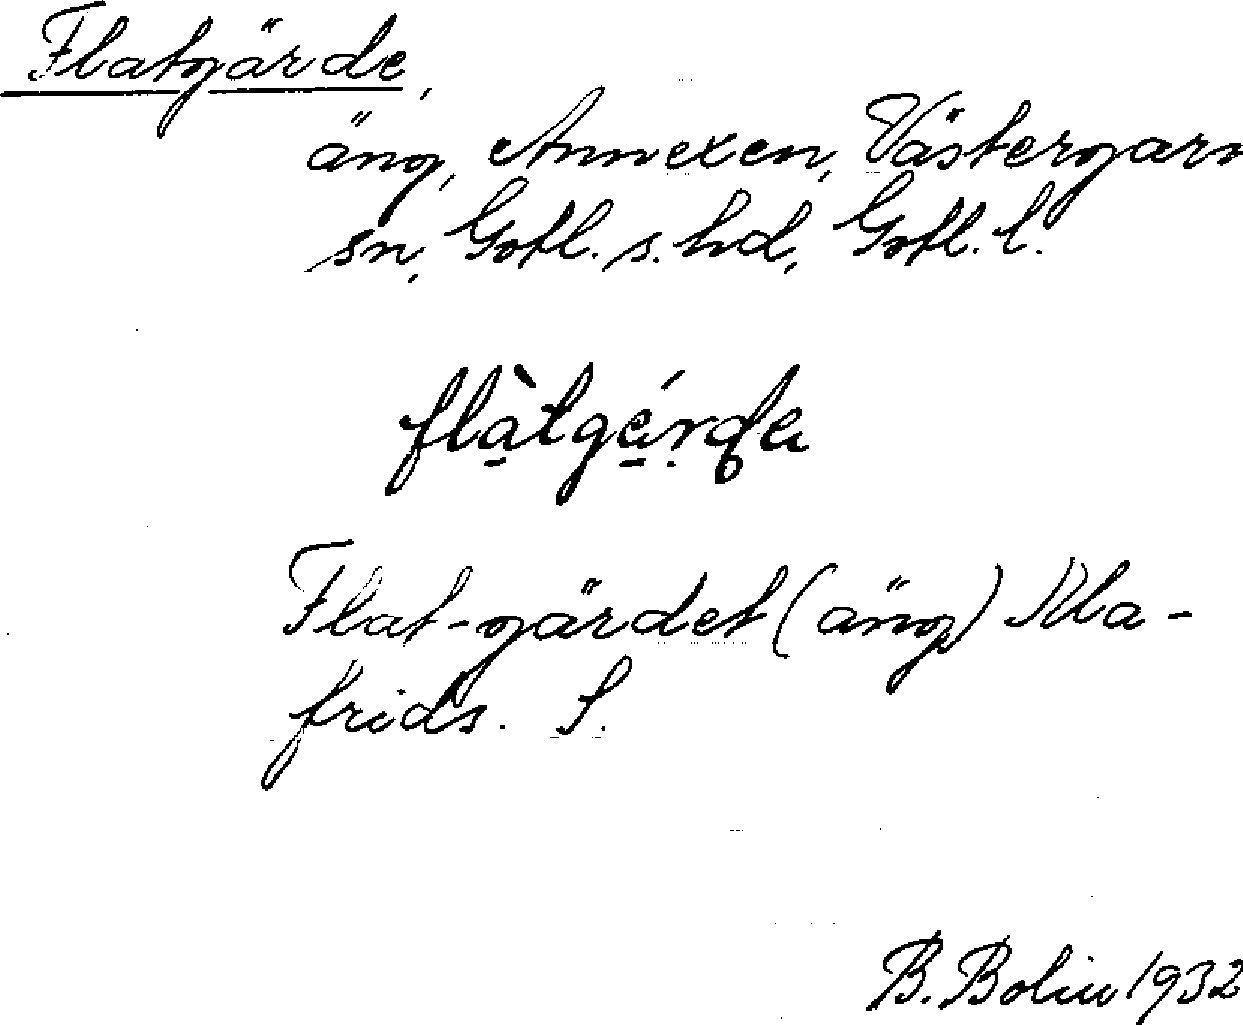 Flatgärde,
äng, Annexen, Västergarn
sn, Gotl. s. hd, Gotl. l.
flàtgérda
Flat-gärdet (äng) Kla-
frids. S.
B. Bolin 1932